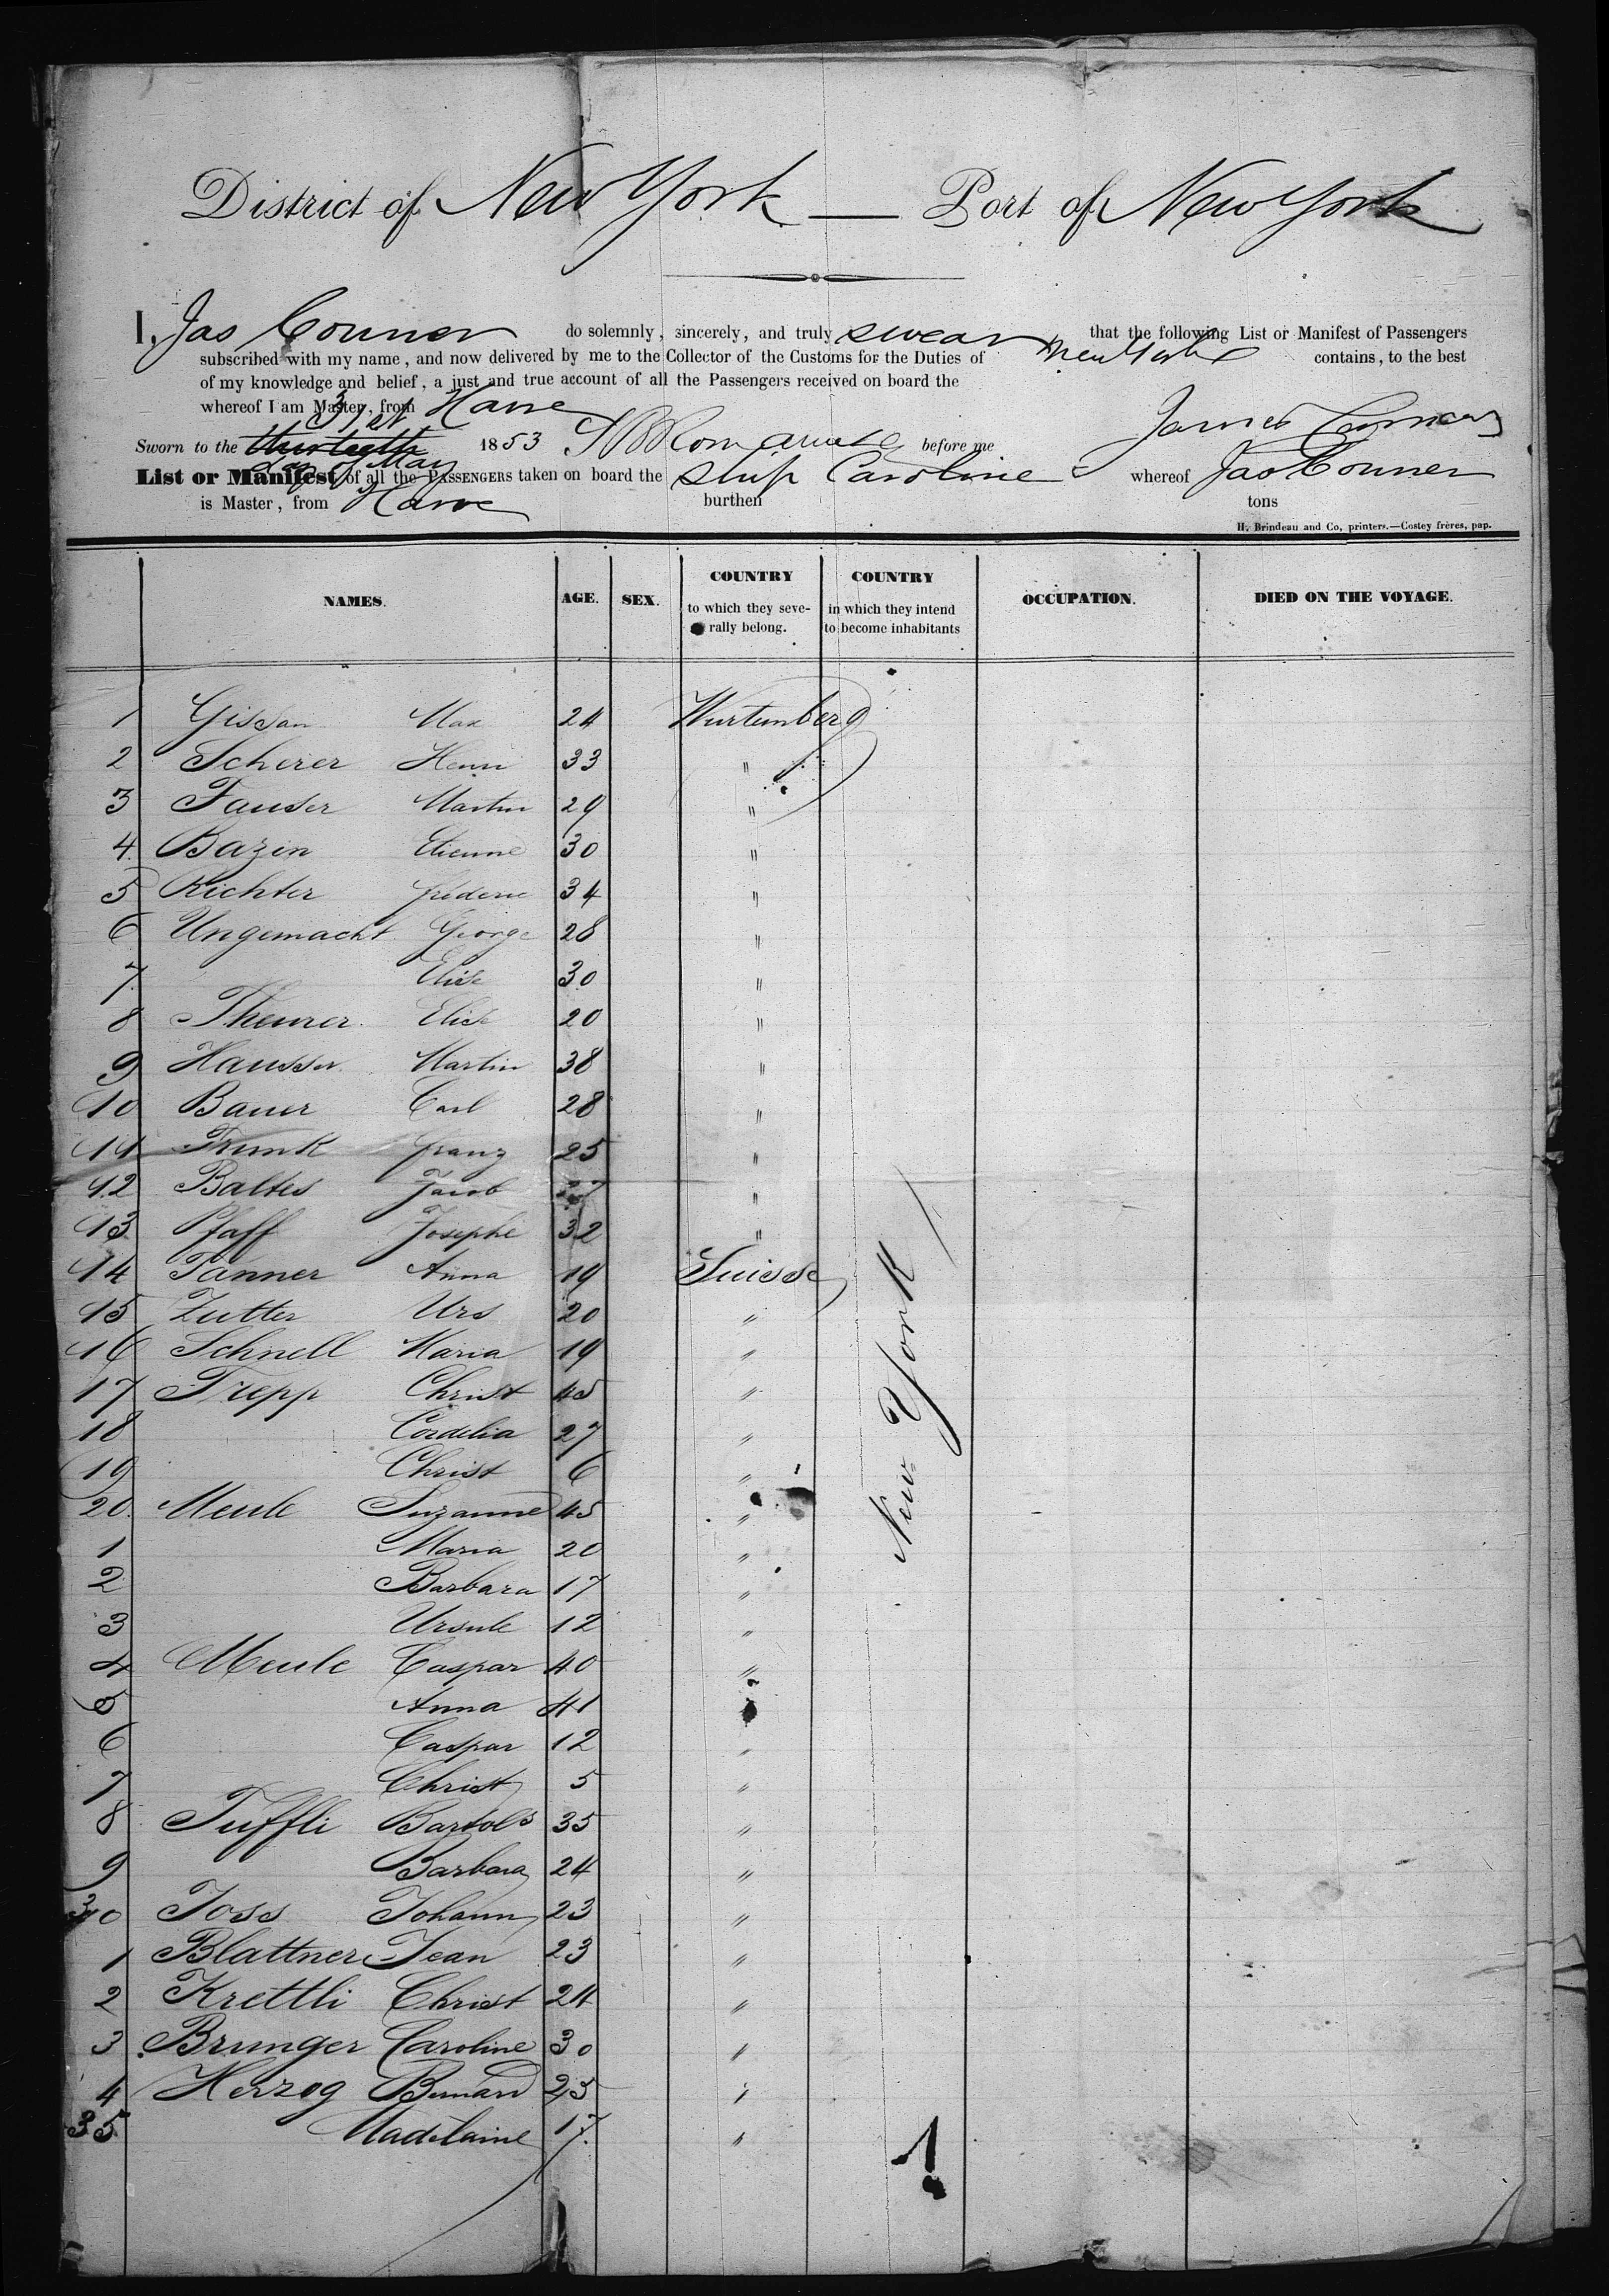 District of New York — Port of New York
I, Jas Conner do solemnly, sincerely, and truly swear that the following List or Manifest of Passengers
subscribed with my name, and now delivered by me to the Collector of the Customs for the Duties of New York contains, to the best
of my knowledge and belief, a just and true account of all the Passengers received on board the
whereof I am Master, from Havre
31st James Conner
Sworn to the thirtieth 1853 before me
day of May
List or Manifest of all the PASSENGERS taken on board the Ship Caroline whereof Jas Conner
is Master, from Havre burthen tons
H. Brindeau and Co, printers.—Costey frères, pap.
NAMES. AGE. SEX. COUNTRY to which they severally belong. COUNTRY in which they intend to become inhabitants OCCUPATION. DIED ON THE VOYAGE.
1 Gissan Max 24 Wurtemberg
2 Scherer Henri 33 "
3 Fauser Martin 29 "
4 Bazin Etienne 30 "
5 Richter frederic 34 "
6 Ungemacht George 28 "
7 Elise 30 "
8 Theurer Elise 20 "
9 Hausser Martin 38 "
10 Bauer Carl 28 "
11 Trunk franz 25 "
12 Baltes Jacob "
13 Pfaff Josephe 32 "
14 Tanner Anna 19 Suisse
15 Zutter Urs 20 "
16 Schnell Maria 19 "
17 Trepp Christ 45 "
18 Cordelia 27 "
19 Christ 6 "
20 Meule Suzanne 45 "
1 Maria 20 "
2 Barbara 17 "
3 Ursule 12 "
4 Meule Caspar 40 "
5 Anna 41
6 Caspar 12 "
7 Christ 5 "
8 Tuffli Bartol 35 "
9 Barbara 24 "
30 Joss Johann 23 "
1 Blattner Jean 23 "
2 Krettli Christ 24 "
3 Brunger Caroline 30 "
4 Herzog Bernard 25 "
35 Madelaine 17 "
New York
1